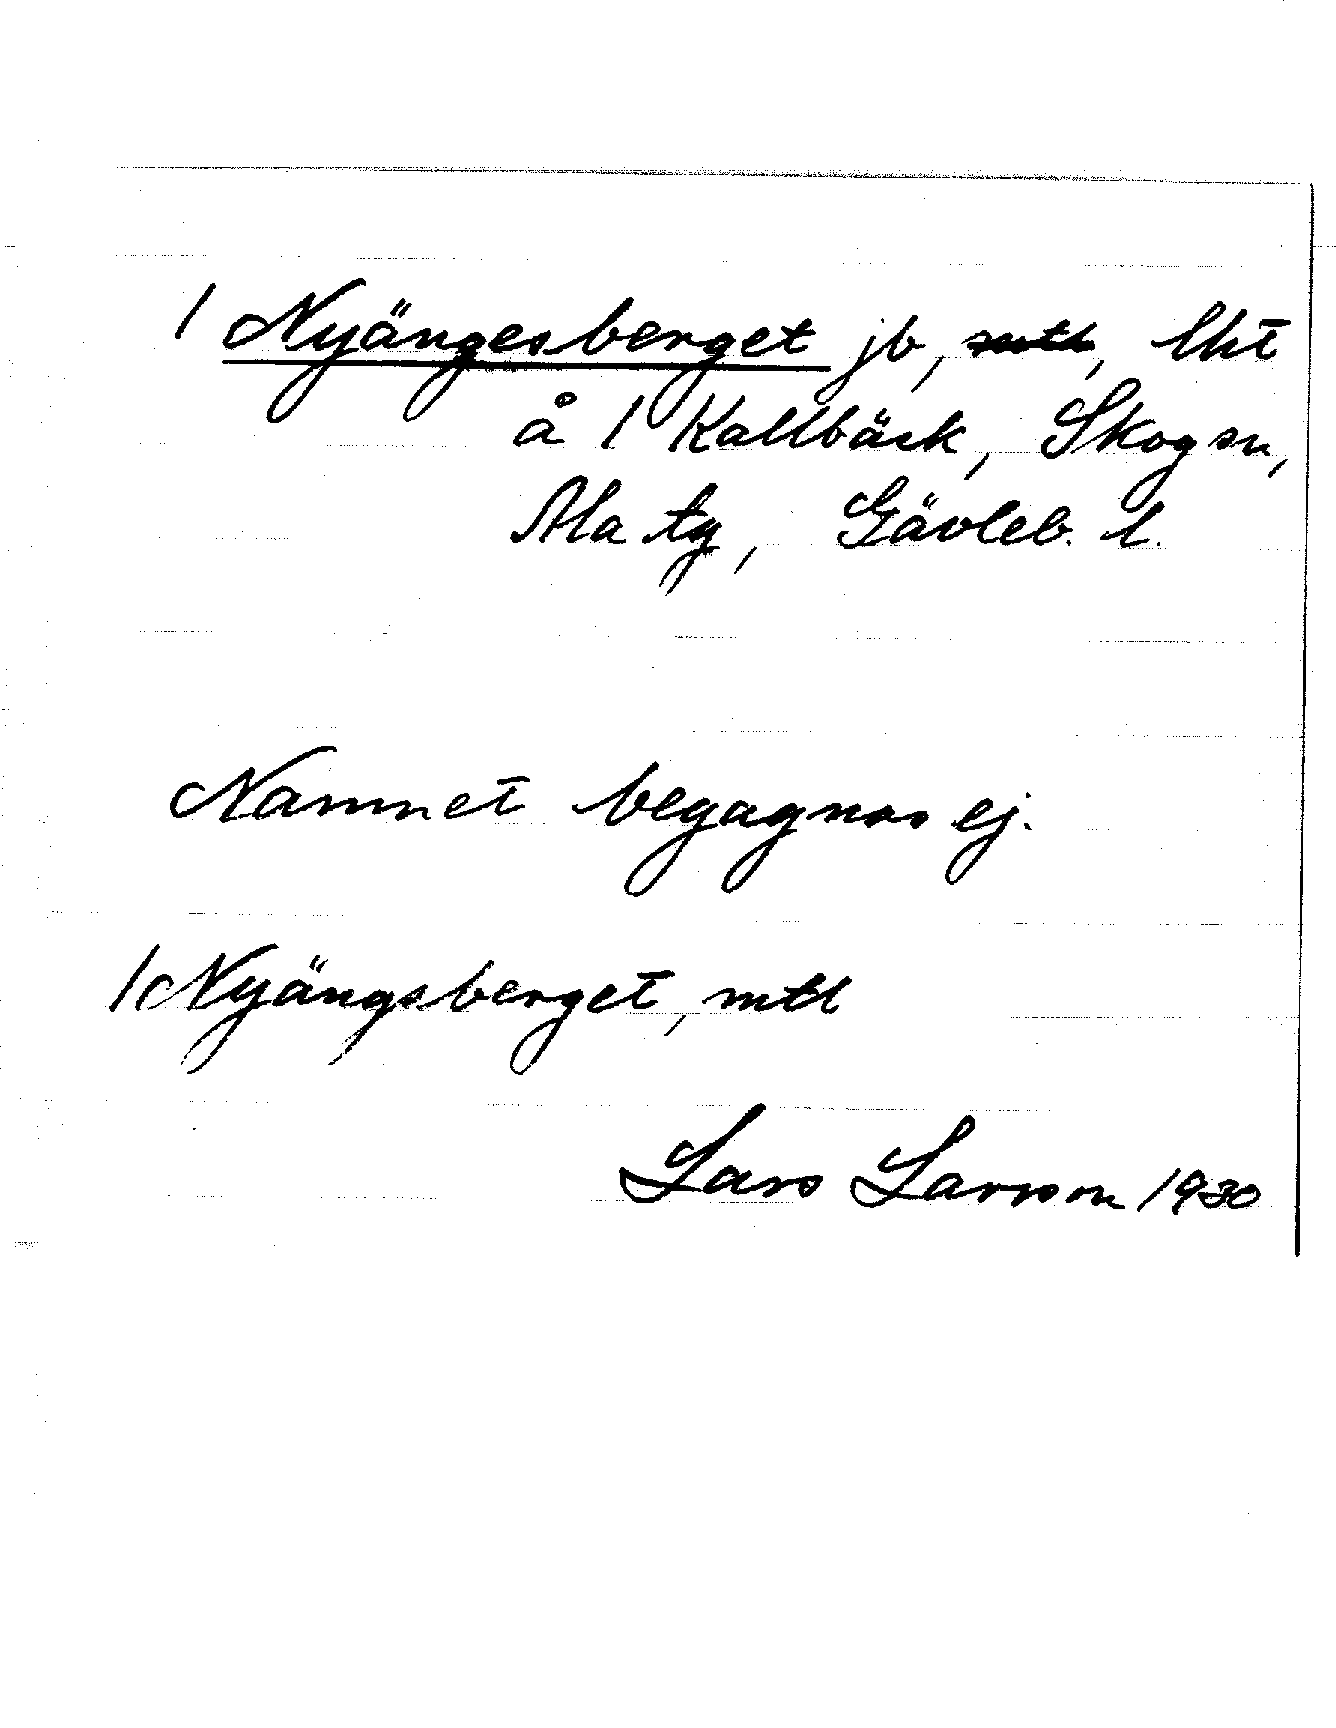 1 Nyängesberget jb, mtl, lht
å 1 Kallbäck, Skog sn,
Ala tg, Gävleb. l.
Namnet begagnas ej.
1 Nyängsberget, mtl
Lars Larsson 1930